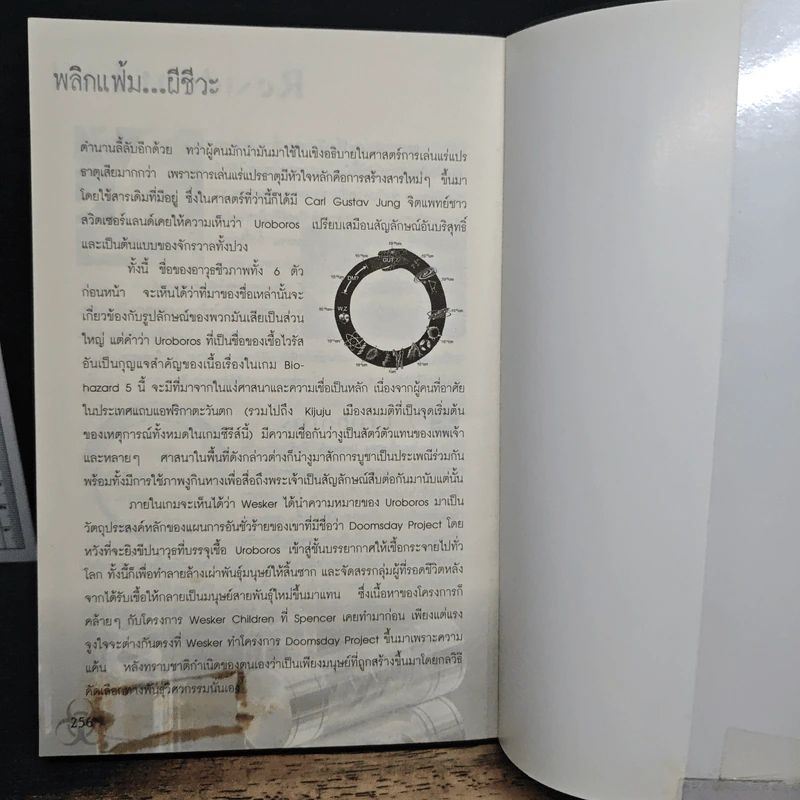 พลิกแฟ้ม...ผีชีวะ
ตำนานลี้ลับอีกด้วย ทว่าผู้คนมักนำมันมาใช้ในเชิงอธิบายในศาสตร์การเล่นแร่แปร
ธาตุเสียมากกว่า เพราะการเล่นแร่แปรธาตุมีหัวใจหลักคือการสร้างสารใหม่ๆ ขึ้นมา
โดยใช้สารเดิมที่มีอยู่ ซึ่งในศาสตร์ที่ว่านี้ก็ได้มี Carl Gustav Jung จิตแพทย์ชาว
สวิตเซอร์แลนด์เคยให้ความเห็นว่า Uroboros เปรียบเสมือนสัญลักษณ์อันบริสุทธิ์
และเป็นต้นแบบของจักรวาลทั้งปวง
ทั้งนี้ ชื่อของอาวุธชีวภาพทั้ง 6 ตัว
ก่อนหน้า จะเห็นได้ว่าที่มาของชื่อเหล่านั้นจะ
เกี่ยวข้องกับรูปลักษณ์ของพวกมันเสียเป็นส่วน
ใหญ่ แต่คำว่า Uroboros ที่เป็นชื่อของเชื้อไวรัส
อันเป็นกุญแจสำคัญของเนื้อเรื่องในเกม Bio-
hazard 5 นี้ จะมีที่มาจากในแง่ศาสนาและความเชื่อเป็นหลัก เนื่องจากผู้คนที่อาศัย
ในประเทศแถบแอฟริกาตะวันตก (รวมไปถึง Kijuju เมืองสมมติที่เป็นจุดเริ่มต้น
ของเหตุการณ์ทั้งหมดในเกมซีรีส์นี้) มีความเชื่อกันว่างูเป็นสัตว์ตัวแทนของเทพเจ้า
และหลายๆ ศาสนาในพื้นที่ดังกล่าวต่างก็นำงูมาสักการบูชาเป็นประเพณีร่วมกัน
พร้อมทั้งมีการใช้ภาพงูกินหางเพื่อสื่อถึงพระเจ้าเป็นสัญลักษณ์สืบต่อกันมานับแต่นั้น
ภายในเกมจะเห็นได้ว่า Wesker ได้นำความหมายของ Uroboros มาเป็น
วัตถุประสงค์หลักของแผนการอันชั่วร้ายของเขาที่มีชื่อว่า Doomsday Project โดย
หวังที่จะยิงขีปนาวุธที่บรรจุเชื้อ Uroboros เข้าสู่ชั้นบรรยากาศให้เชื้อกระจายไปทั่ว
โลก ทั้งนี้ก็เพื่อทำลายล้างเผ่าพันธุ์มนุษย์ให้สิ้นซาก และจัดสรรกลุ่มผู้ที่รอดชีวิตหลัง
จากได้รับเชื้อให้กลายเป็นมนุษย์สายพันธุ์ใหม่ขึ้นมาแทน ซึ่งเนื้อหาของโครงการก็
คล้ายๆ กับโครงการ Wesker Children ที่ Spencer เคยทำมาก่อน เพียงแต่แรง
จูงใจจะต่างกันตรงที่ Wesker ทำโครงการ Doomsday Project ขึ้นมาเพราะความ
แค้น หลังทราบชาติกำเนิดของตนเองว่าเป็นเพียงมนุษย์ที่ถูกสร้างขึ้นมาโดยกลวิธี
คัดเลือกทางพันธุวิศวกรรมนั่นเอง
GUT
DM?
W,Z
256